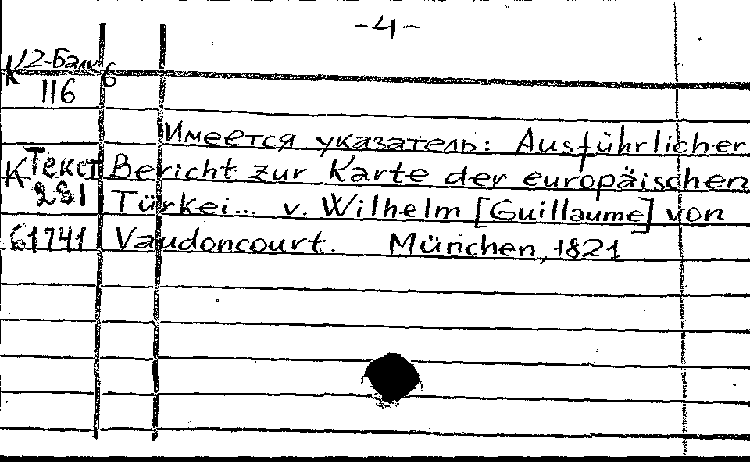 -4-
К 2-Балк 6
116
Имеется указатель: Ausführlicher
К Текст Bericht zur Karte der europäischen
281 Türkei... v. Wilhelm [Guillaume] von
61741 Vaudoncourt. München, 1821